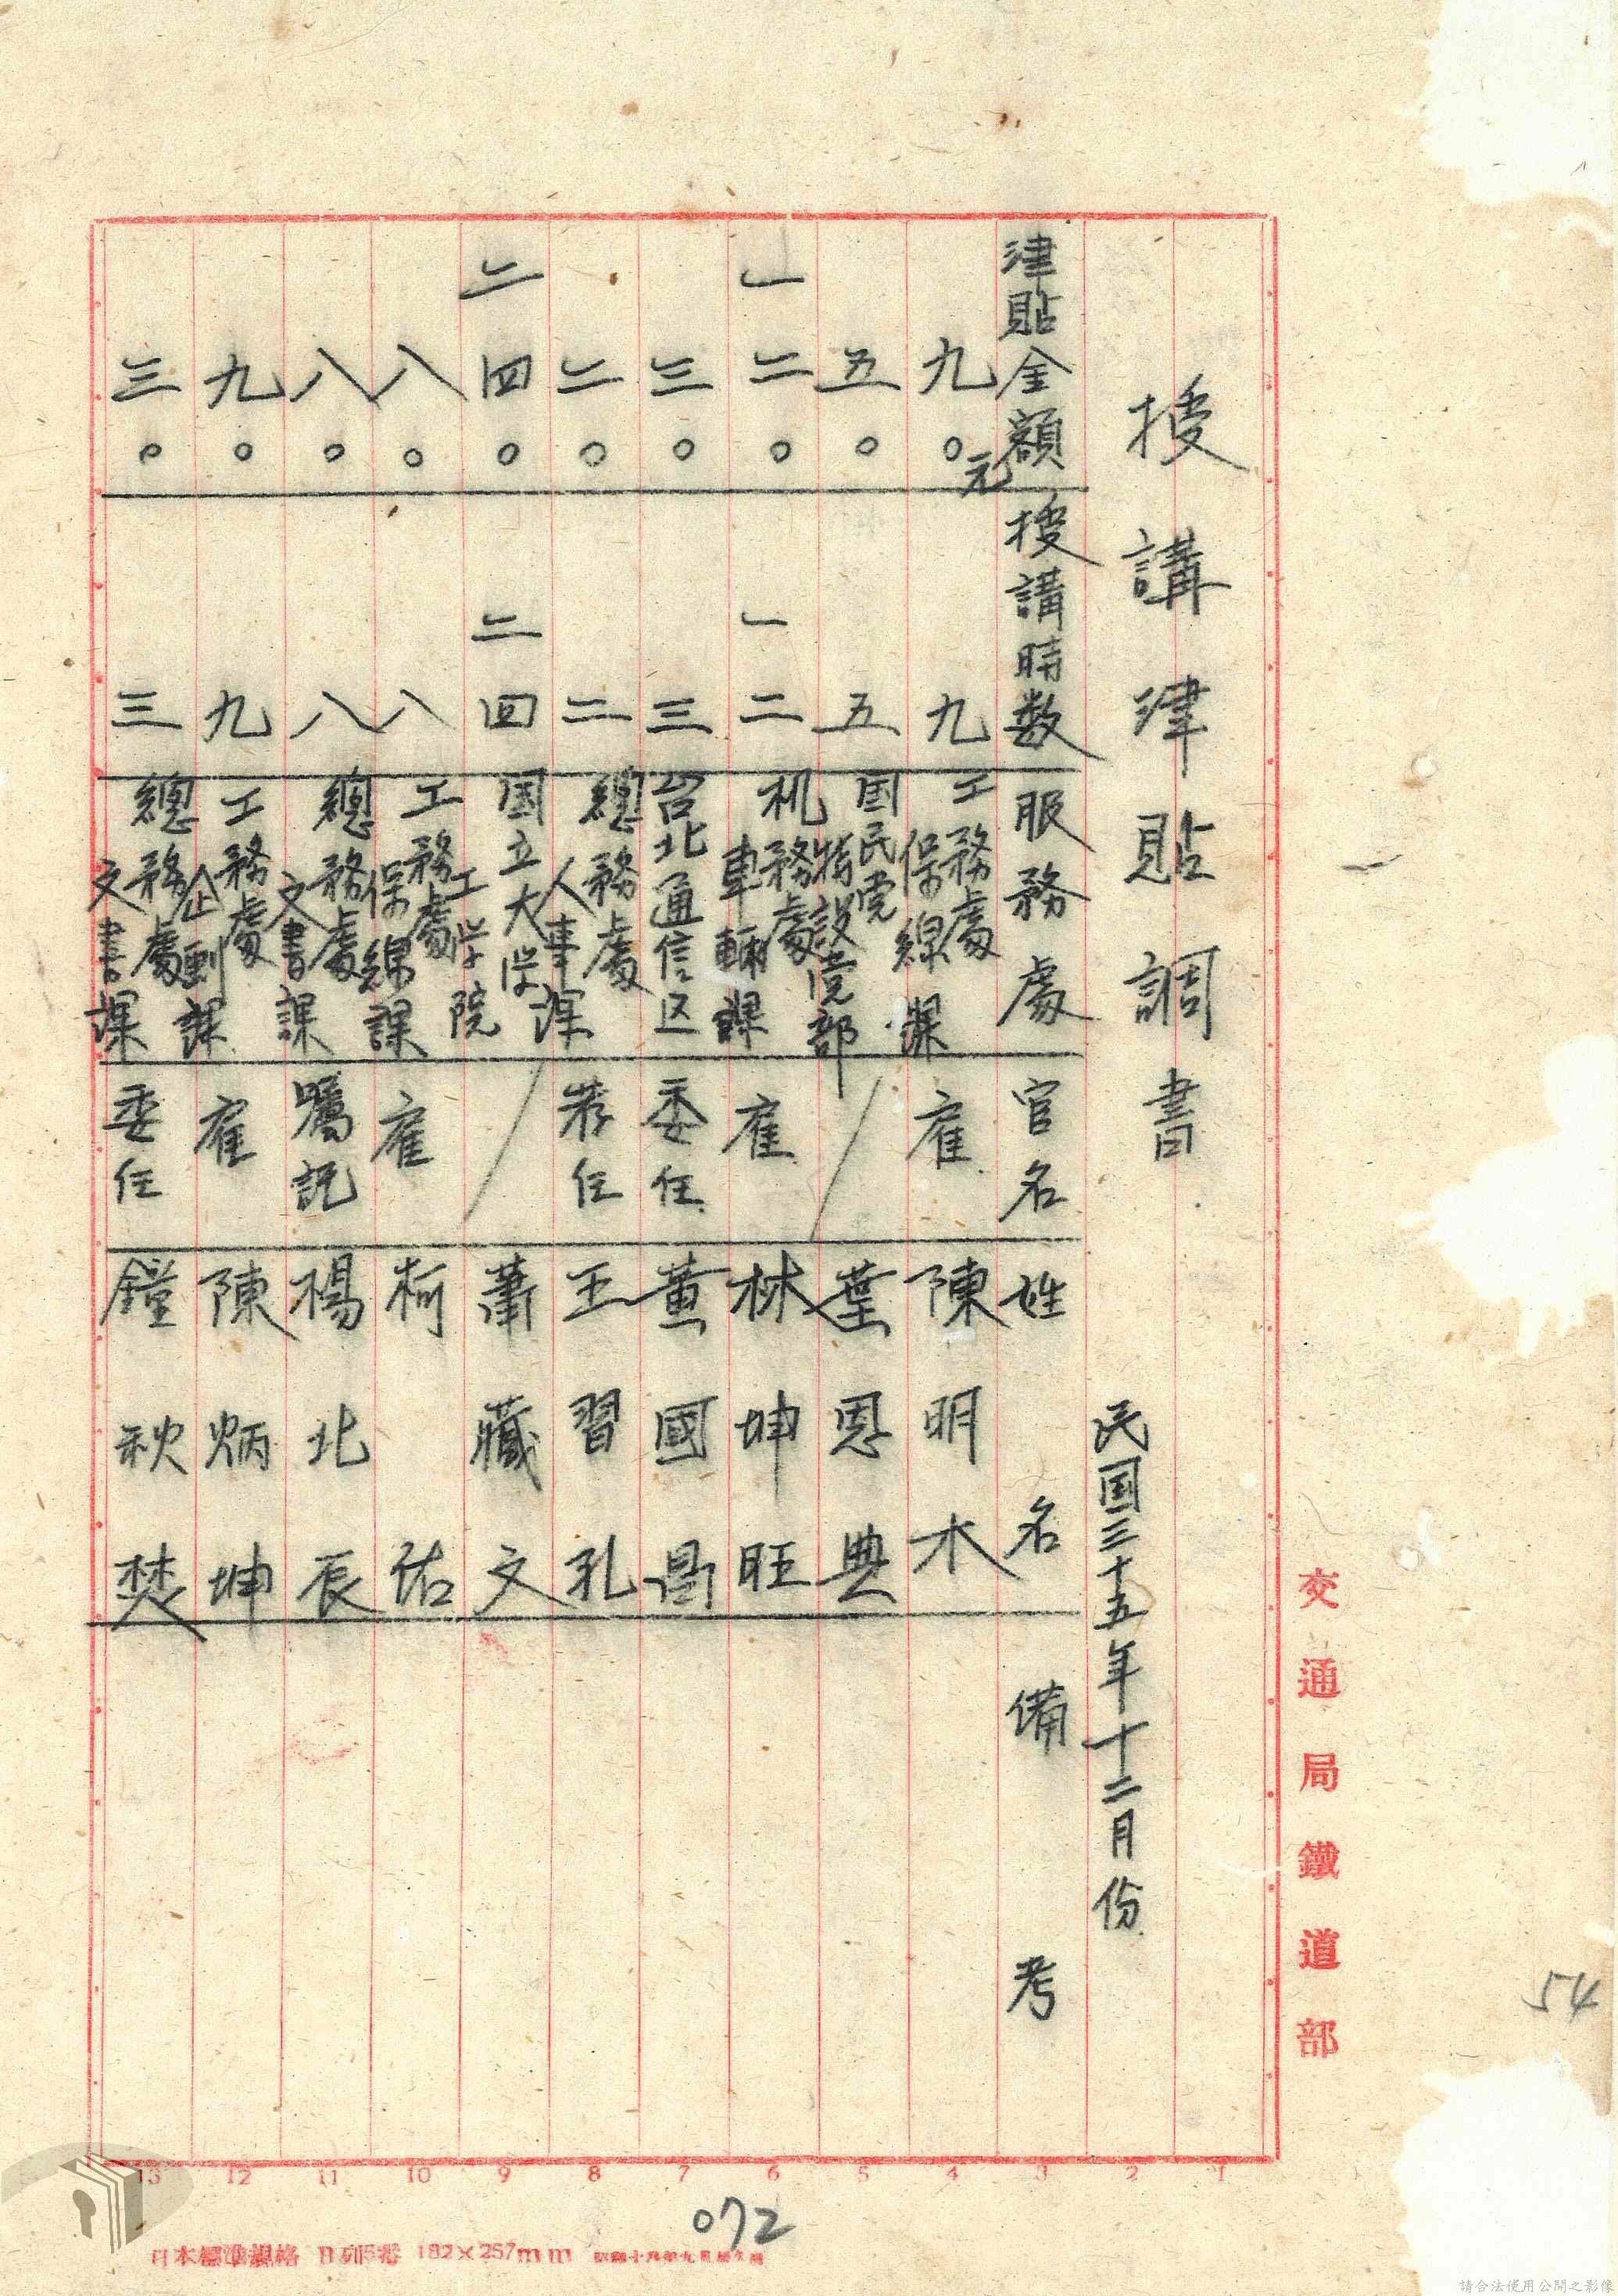 授講津貼調書
民国三十五年十二月份
津貼金額 授講時数 服務處 官名 姓名 備考
九〇元 九 工務處保線課 雇 陳明木
五〇 五 国民党特設党部 / 葉恩典
一二〇 一二 机務處車輛課 雇 林坤旺
三〇 三 台北通信区 委任 黃國昌
二〇 二 總務處人事課 荐任 王習孔
二四〇 二四 国立大学工学院 / 蕭藏文
八〇 八 工務處保線課 雇 柯佑
八〇 八 總務處文書課 囑託 楊北辰
九〇 九 工務處企劃課 雇 陳炳坤
三〇 三 總務處文書課 委任 鐘秋焚
交通局鐵道部
54
1 2 3 4 5 6 7 8 9 10 11 12 13
072
日本標準規格 B列5番 182×257mm
請合法使用公開之影像